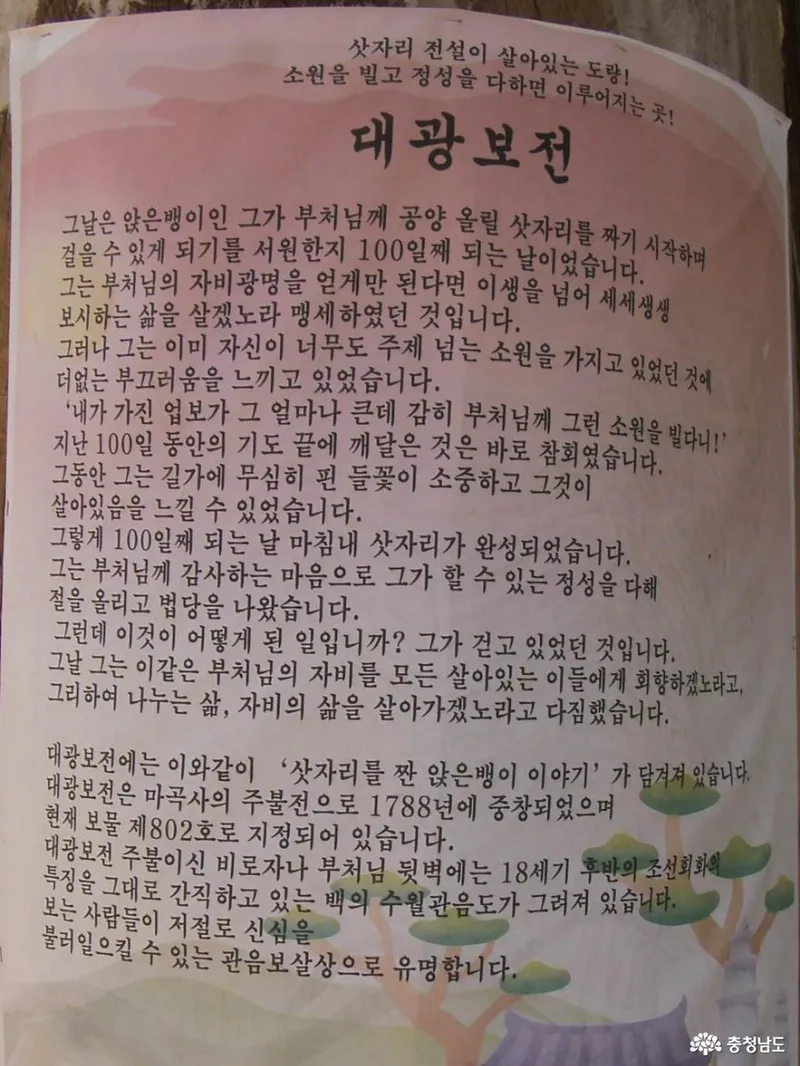 삿자리 전설이 살아있는 도량!
소원을 빌고 정성을 다하면 이루어지는 곳!
대광보전
그날은 앉은뱅이인 그가 부처님께 공양 올릴 삿자리를 짜기 시작하며
걸을 수 있게 되기를 서원한지 100일째 되는 날이었습니다.
그는 부처님의 자비광명을 얻게만 된다면 이생을 넘어 세세생생
보시하는 삶을 살겠노라 맹세하였던 것입니다.
그러나 그는 이미 자신이 너무도 주제 넘는 소원을 가지고 있었던 것에
더없는 부끄러움을 느끼고 있었습니다.
‘내가 가진 업보가 그 얼마나 큰데 감히 부처님께 그런 소원을 빌다니!’
지난 100일 동안의 기도 끝에 깨달은 것은 바로 참회였습니다.
그동안 그는 길가에 무심히 핀 들꽃이 소중하고 그것이
살아있음을 느낄 수 있었습니다.
그렇게 100일째 되는 날 마침내 삿자리가 완성되었습니다.
그는 부처님께 감사하는 마음으로 그가 할 수 있는 정성을 다해
절을 올리고 법당을 나왔습니다.
그런데 이것이 어떻게 된 일입니까? 그가 걷고 있었던 것입니다.
그날 그는 이같은 부처님의 자비를 모든 살아있는 이들에게 회향하겠노라고,
그리하여 나누는 삶, 자비의 삶을 살아가겠노라고 다짐했습니다.
대광보전에는 이와같이 ‘삿자리를 짠 앉은뱅이 이야기’가 담겨져 있습니다.
대광보전은 마곡사의 주불전으로 1788년에 중창되었으며
현재 보물 제802호로 지정되어 있습니다.
대광보전 주불이신 비로자나 부처님 뒷벽에는 18세기 후반의 조선회화의
특징을 그대로 간직하고 있는 백의 수월관음도가 그려져 있습니다.
보는 사람들이 저절로 신심을
불러일으킬 수 있는 관음보살상으로 유명합니다.
충청남도